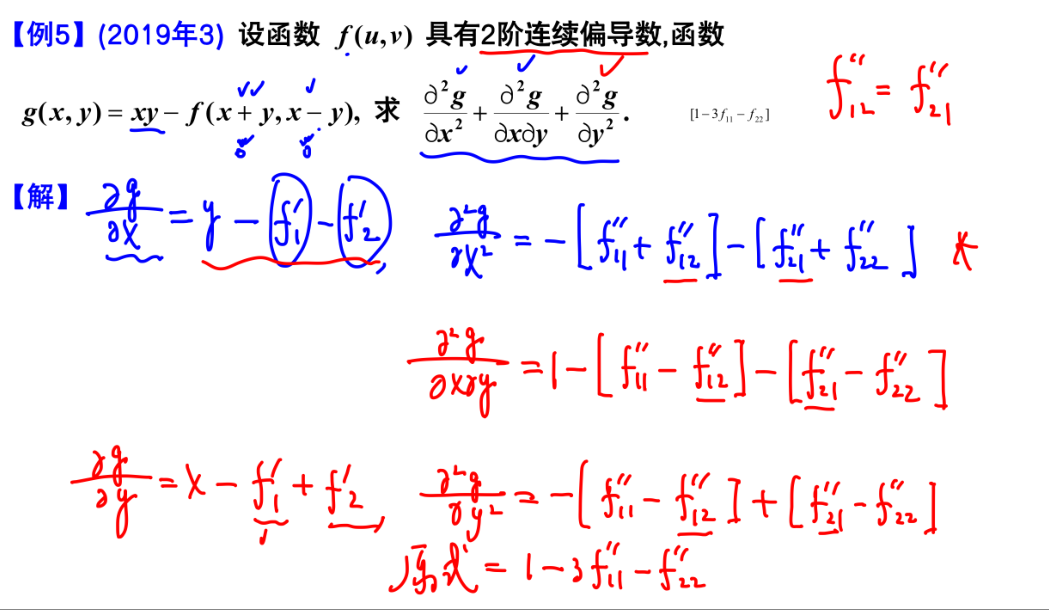 【例5】(2019年3) 设函数 f(u,v) 具有2阶连续偏导数,函数
f''₁₂ = f''₂₁
g(x,y) = xy − f(x + y, x − y), 求 ∂²g/∂x² + ∂²g/∂x∂y + ∂²g/∂y². [1−3f₁₁ − f₂₂]
【解】 ∂g/∂x = y − f'₁ − f'₂, ∂²g/∂x² = −[f''₁₁ + f''₁₂] − [f''₂₁ + f''₂₂]
∂²g/∂x∂y = 1 − [f''₁₁ − f''₁₂] − [f''₂₁ − f''₂₂]
∂g/∂y = x − f'₁ + f'₂, ∂²g/∂y² = −[f''₁₁ − f''₁₂] + [f''₂₁ − f''₂₂]
原式 = 1 − 3f''₁₁ − f''₂₂